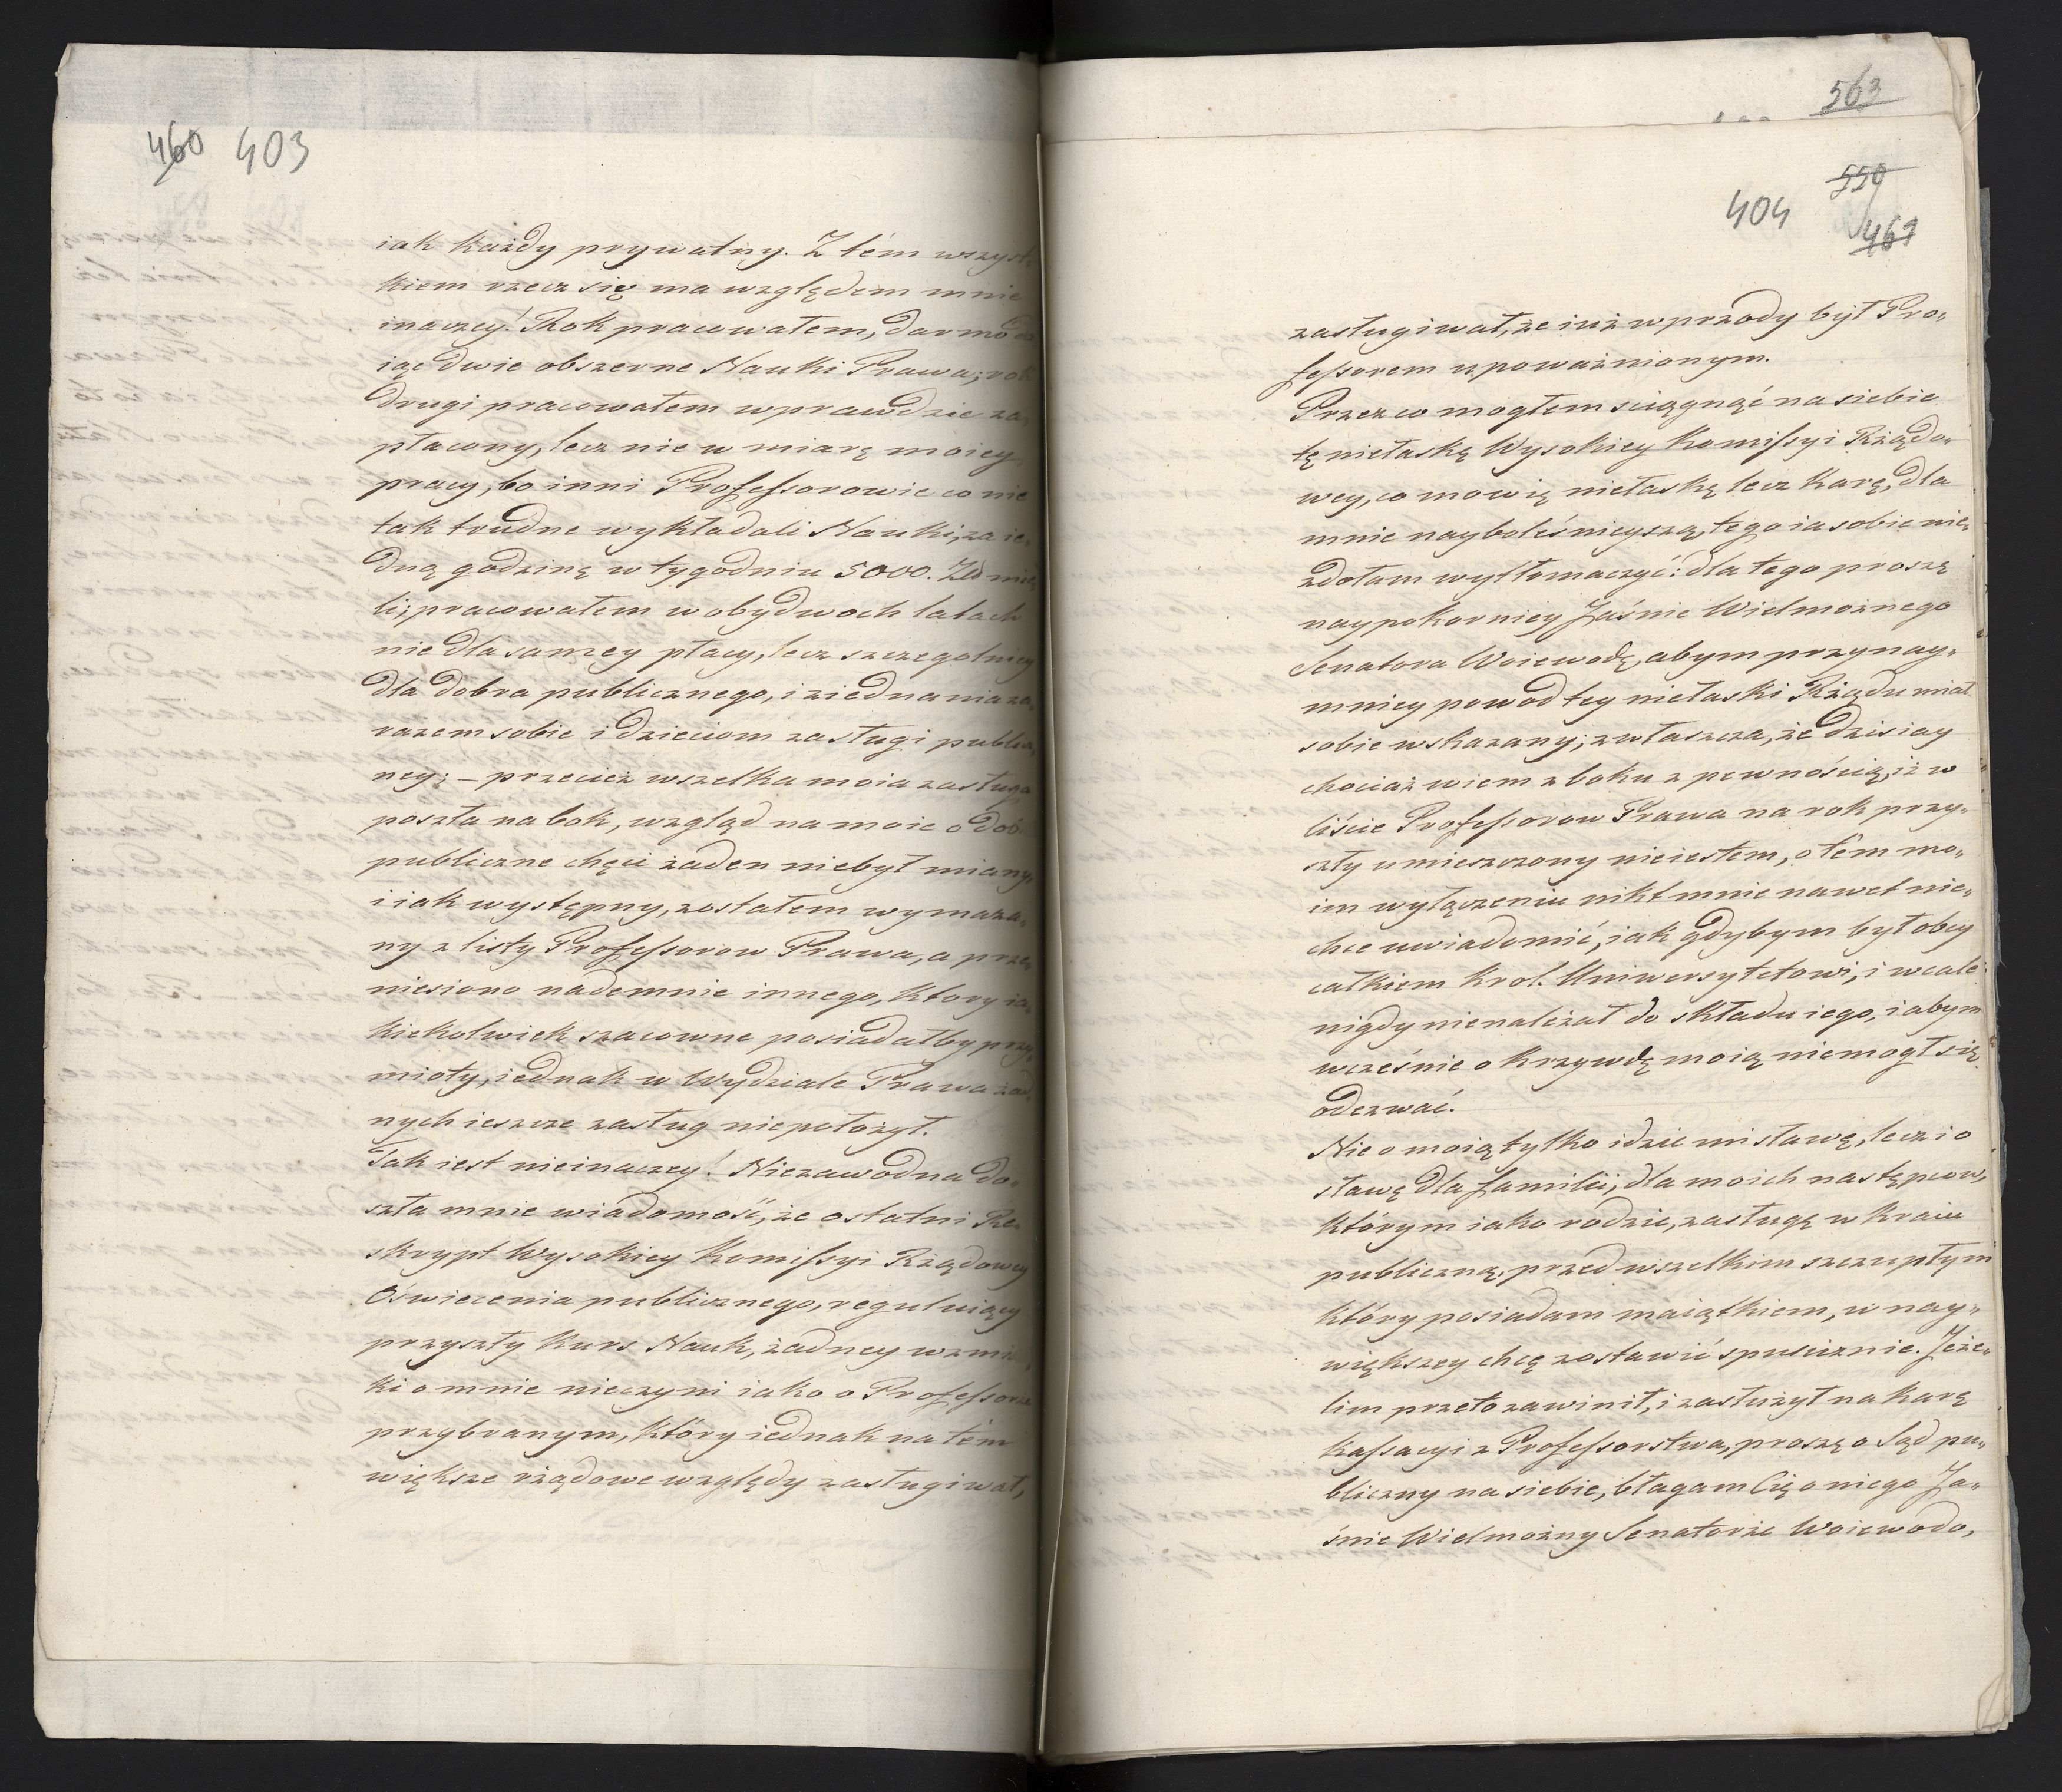 460 403
iak każdy prywatny. Z tém wszyst
kiem rzecz się ma względem mnie
inaczey! Rok pracowałem, darmo
iąc dwie obszerne Nauki Prawa; rok
drugi pracowałem wprawdzie za
płacony, lecz nie w miarę moiey
pracy, bo inni Professorowie co nie
tak trudne wykładali Nauki, za ie„
dną godzinę w tygodniu 5000. Zł. mie
li; pracowałem w obydwoch latach
nie dla samey płacy, lecz szczegolniey
dla dobra publicznego, i ziednania za„
razem sobie i dzieciom zasługi publicz
ney; – przecież wszelka moia zasługa
poszła na bok, wzgląd na moie o dob
publiczne chęci żaden niebył miany
i iak występny, zostałem wymaza„
ny z listy Professorow Prawa, a prze
niesiono nademnie innego, ktory ia„
kiekolwiek szacowne posiadałby przy„
mioty, iednak w Wydziale Prawa żad
nych ieszcze zasług niepołożył.
Tak iest nieinaczey! Niezawodna do„
szła mnie wiadomość, że ostatni Re
skrypt Wysokiey Komissyi Rządowey
Oświecenia publicznego, reguluiący
przyszły Kurs Nauk, żadney wzmian
ki o mnie nieczyni iako o Professorze
przybranym, który iednak na tém
większe rządowe względy zasługiwał,
563
550
404 461
zasługiwał, że iuż wprzody był Pro„
fessorem upoważnionym.
Przez co mogłem sciągnąć na siebie
tę niełaskę Wysokiey Komissyi Rządo„
wey, co mowię niełaskę lecz karę, dla
mnie nayboleśnieyszą, tego ia sobie nie„
zdołam wytłomaczyć: dla tego proszę
naypokorniey Jaśnie Wielmożnego
Senatora Woiewodę, abym przynay„
mniey powod tey niełaski Rządu miał
sobie wskazany; zwłaszcza, że dzisiay
chociaż wiem z boku z pewnością, iż w
liście Professorow Prawa na rok przy„
szły umieszczony nieiestem, o tém mo„
im wyłączeniu nikt mnie nawet nie„
chce uwiadomić, iak gdybym był obcy
całkiem Krol. Uniwersytetowi, i wcale
nigdy nienależał do składu iego, i abym
wcześnie o krzywdę moią niemogł się
odezwać.
Nie o moią tylko idzie mi sławę, lecz i o
sławę dla familii, dla moich następcow,
którym iako rodzic, zasługę w kraiu
publiczną, przed wszelkim szczupłym
który posiadam maiątkiem, w nay„
większey chcę zostawić spusciznie. Jeże„
lim przeto zawinił, i zasłużył na karę
kassacyi z Professorstwa, proszę o Sąd pu„
bliczny na siebie, błagam Cię o niego Ja„
śnie Wielmożny Senatorze Woiewodo,